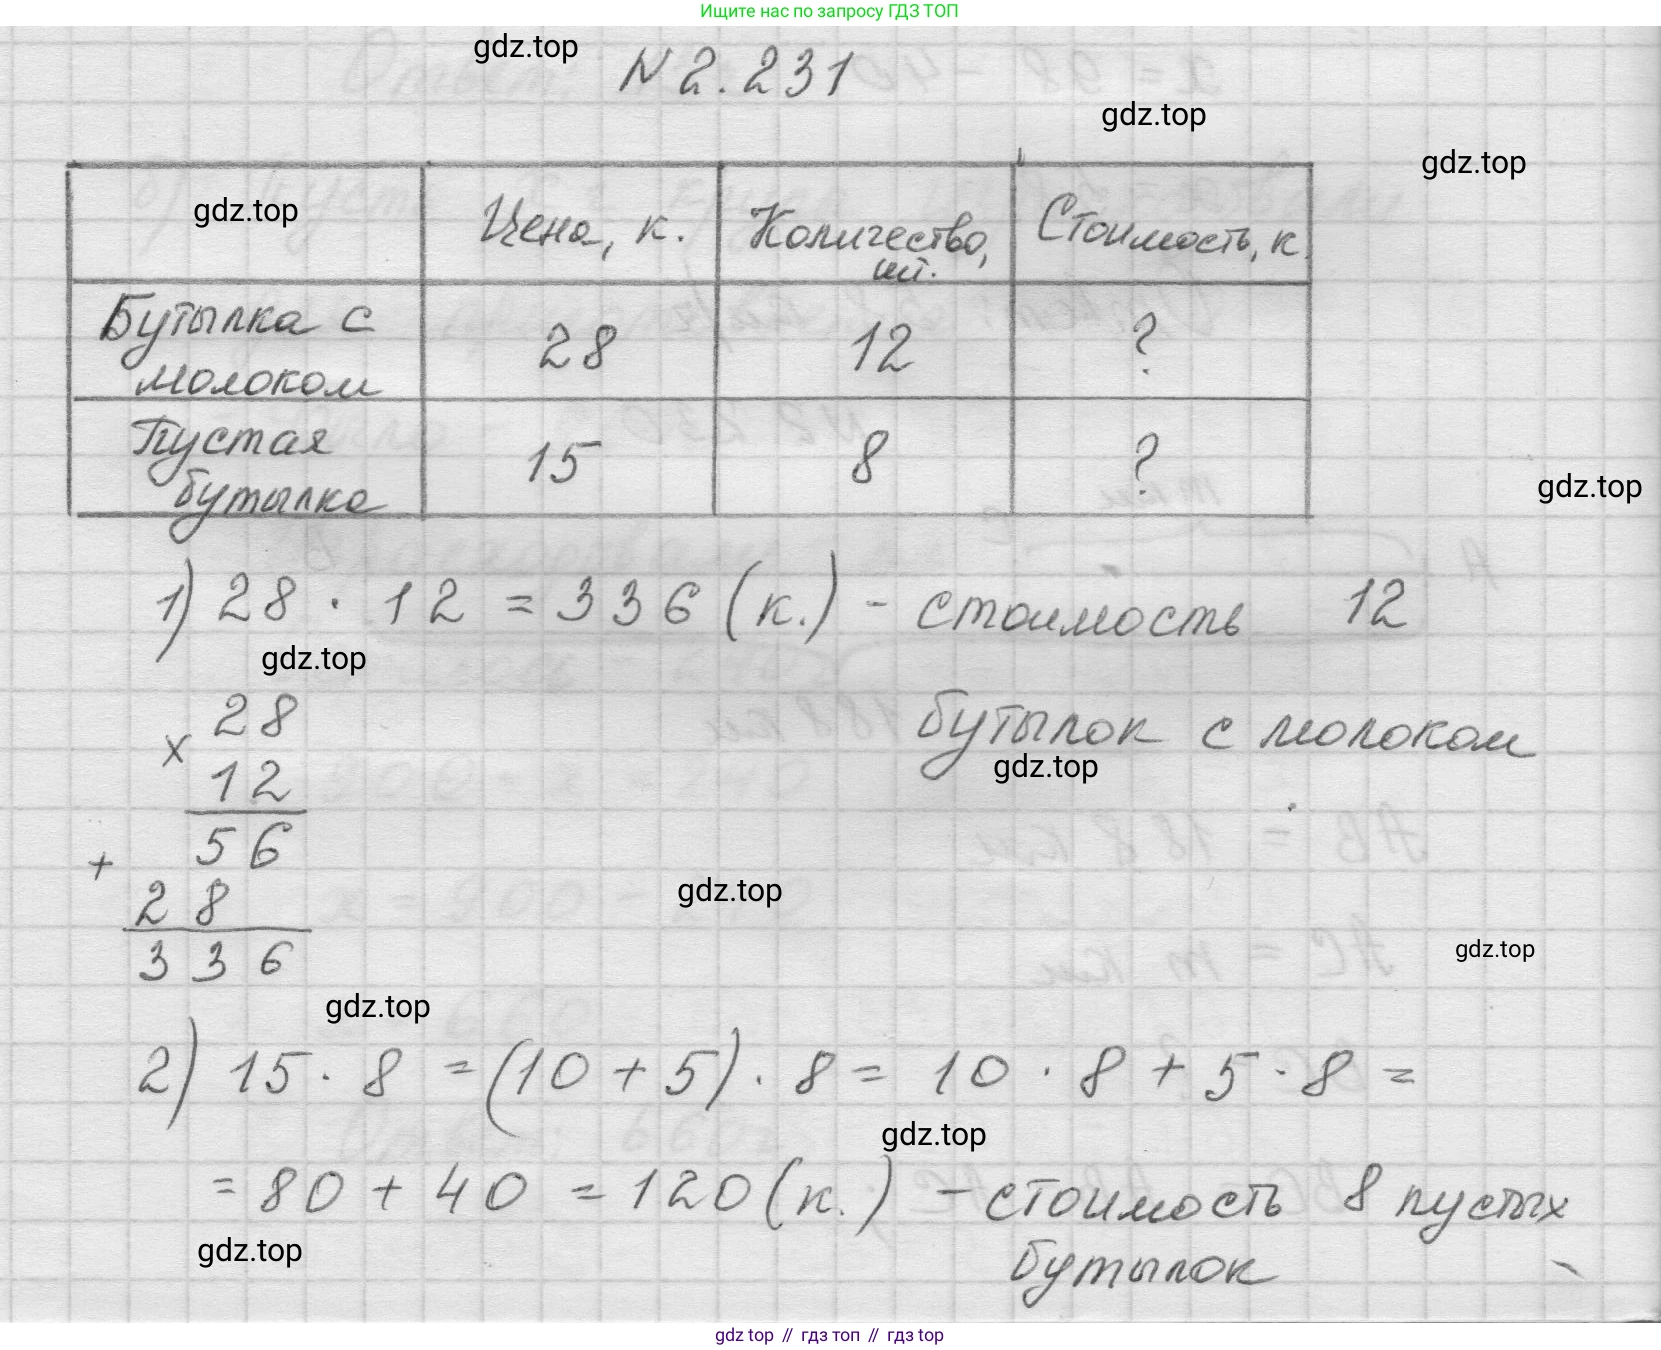 Ищите нас по запросу ГДЗ ТОП
gdz.top
N 2.231
gdz.top
gdz.top
gdz.top
Цена, к.
Количество, шт.
Стоимость, к.
Бутылка с молоком
28
12
?
Пустая бутылка
15
8
?
gdz.top
1) 28 · 12 = 336 (к.) - стоимость 12
gdz.top
28
бутылок с молоком
×
gdz.top
12
56
+
28
gdz.top
336
gdz.top
gdz.top
2) 15 · 8 = (10 + 5) · 8 = 10 · 8 + 5 · 8 =
gdz.top
= 80 + 40 = 120 (к.) - стоимость 8 пустых
gdz.top
бутылок
gdz top // гдз топ // гдз top